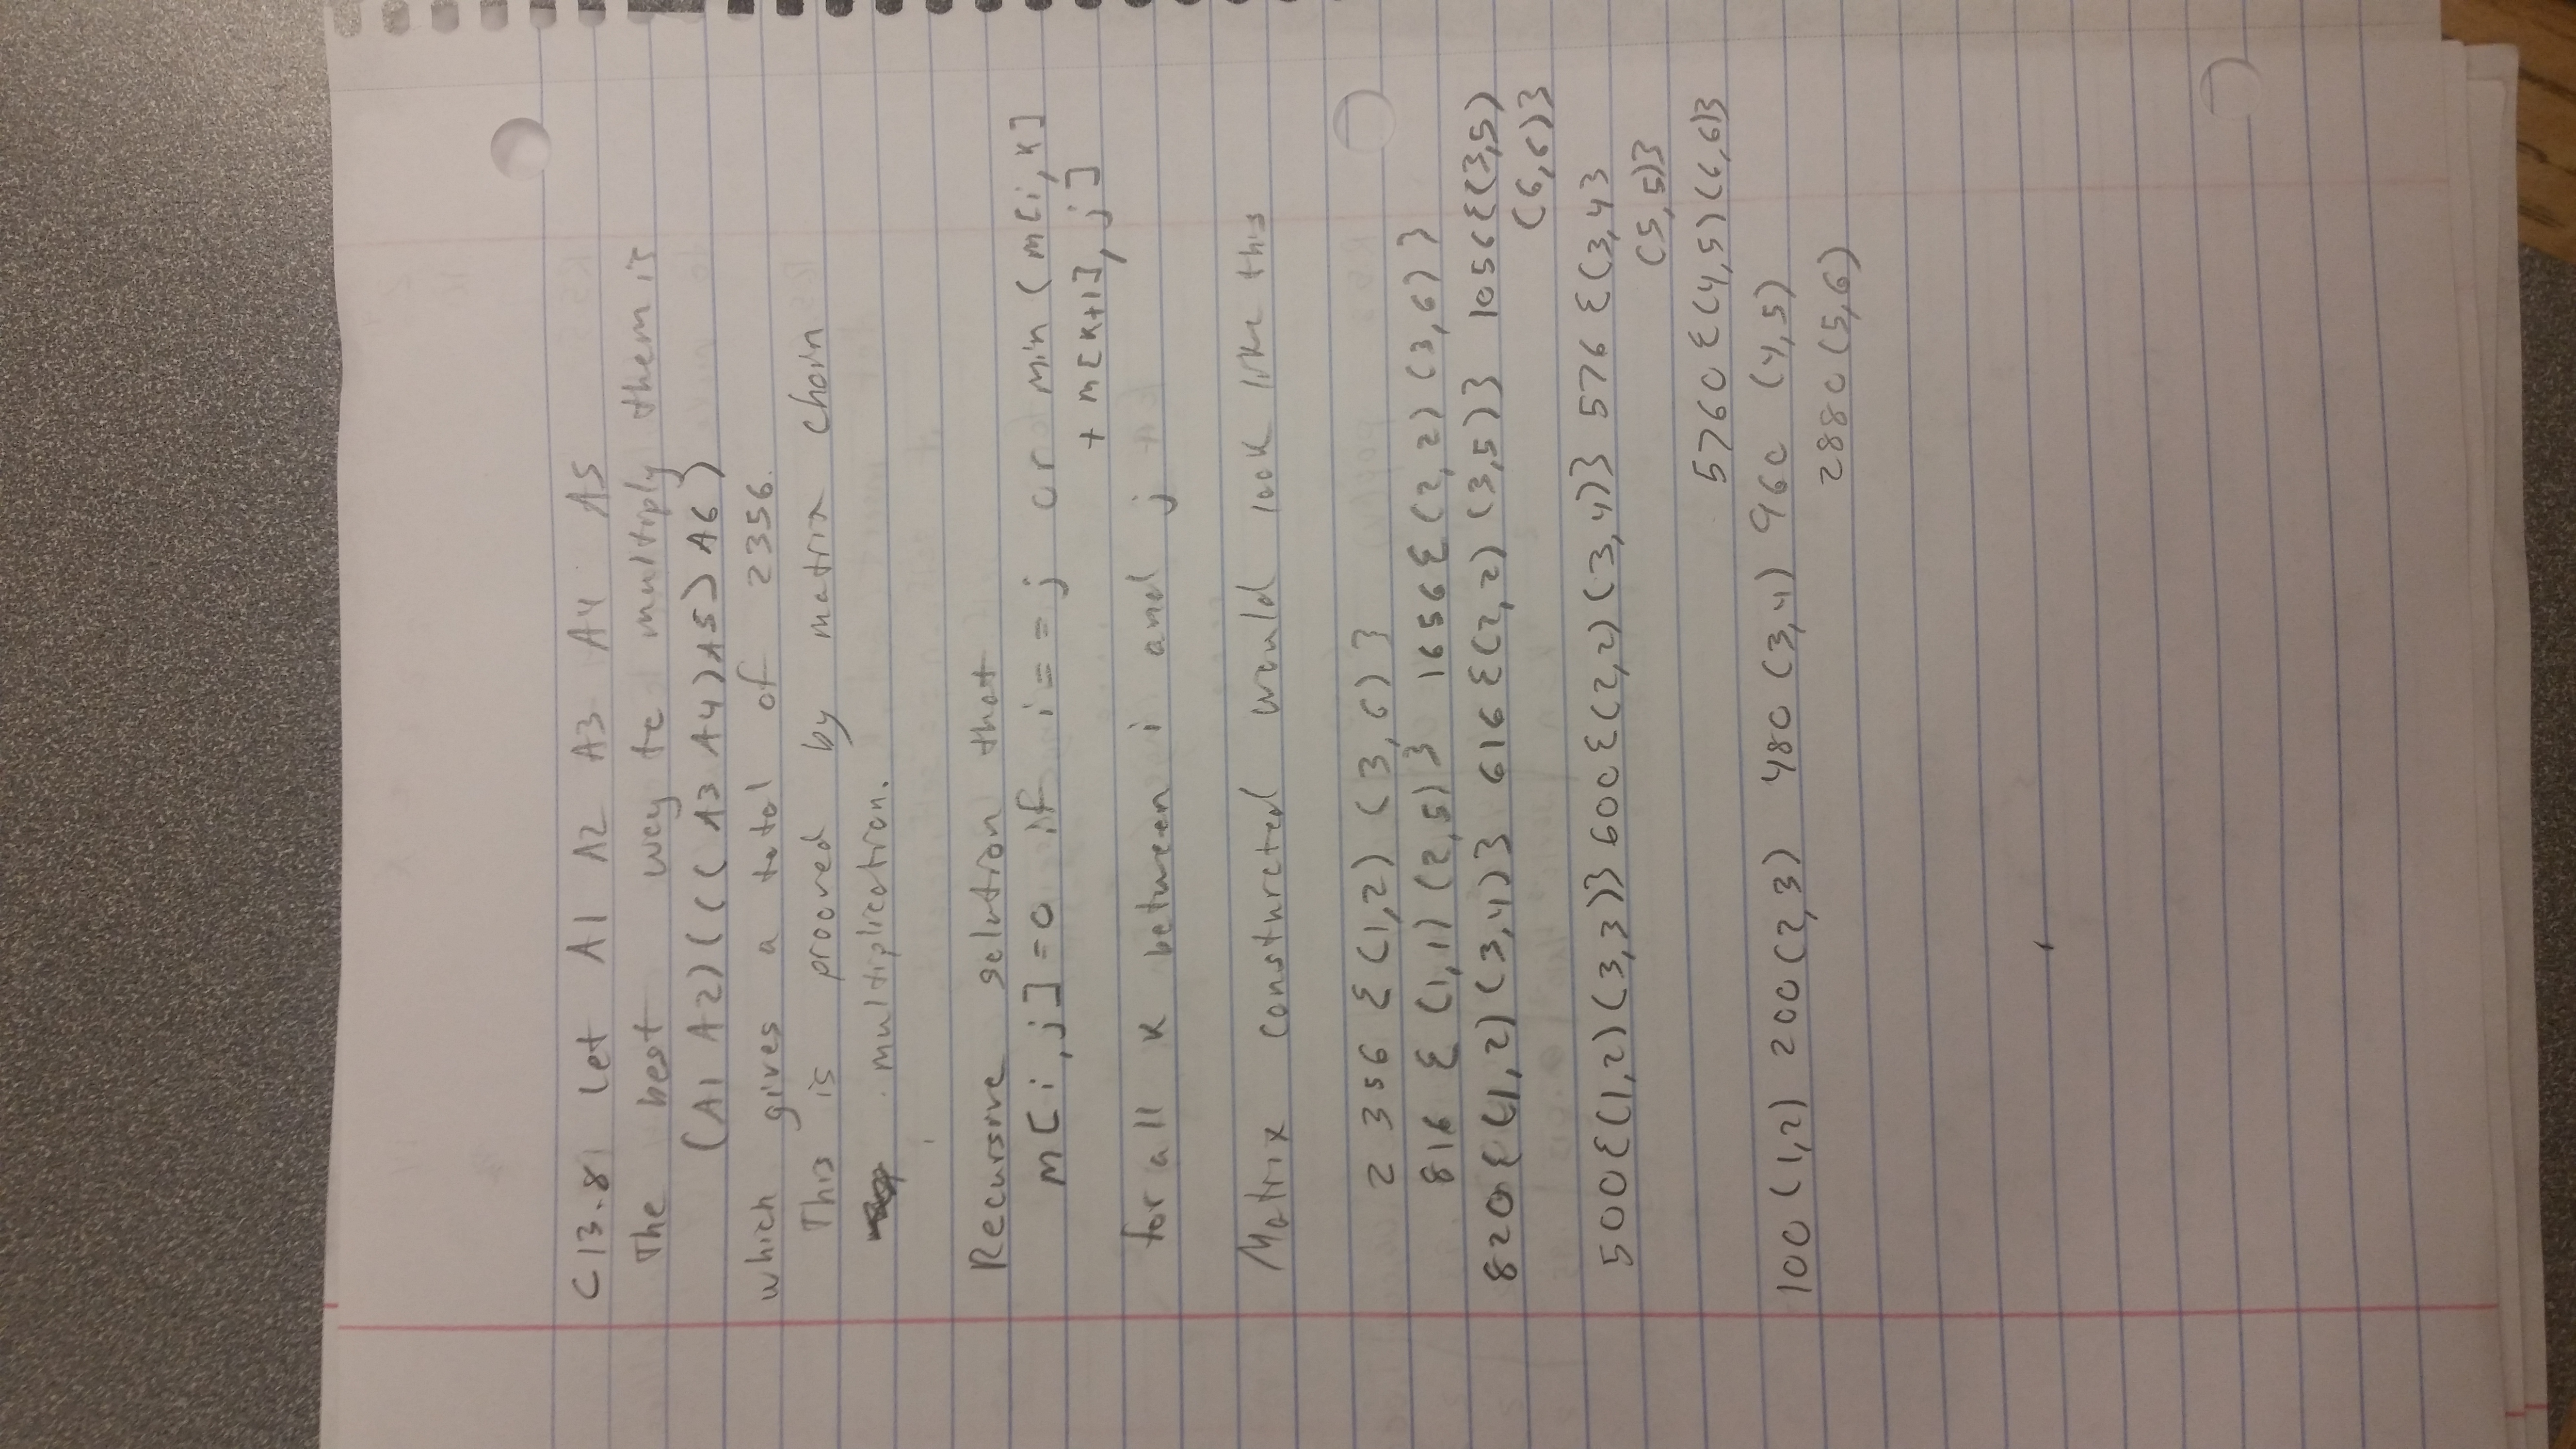 C13.8) Let A1 A2 A3 A4 A5
The best way to multiply them is
(A1 A2)(((A3 A4)A5)A6)
which gives a total of 2356.
This is prooved by matrix chain
multiplication.
Recursive solution that
m[i,j]=0 if i==j or min(m[i,k]
+ m[k+1], j]
for all k between i and j
Matrix consturcted would look like this
2356 {(1,2) (3,6)}
816 {(1,1) (2,5)} 1656{(2,2) (3,6)}
820{(1,2)(3,4)} 616{(2,2) (3,5)} 1056{(3,5)
(6,6)}
500{(1,2)(3,3)} 600{(2,2)(3,4)} 576 {(3,4}
(5,5)}
5760{(4,5)(6,6)}
100(1,2) 200(2,3) 480(3,4) 960 (4,5)
2880(5,6)